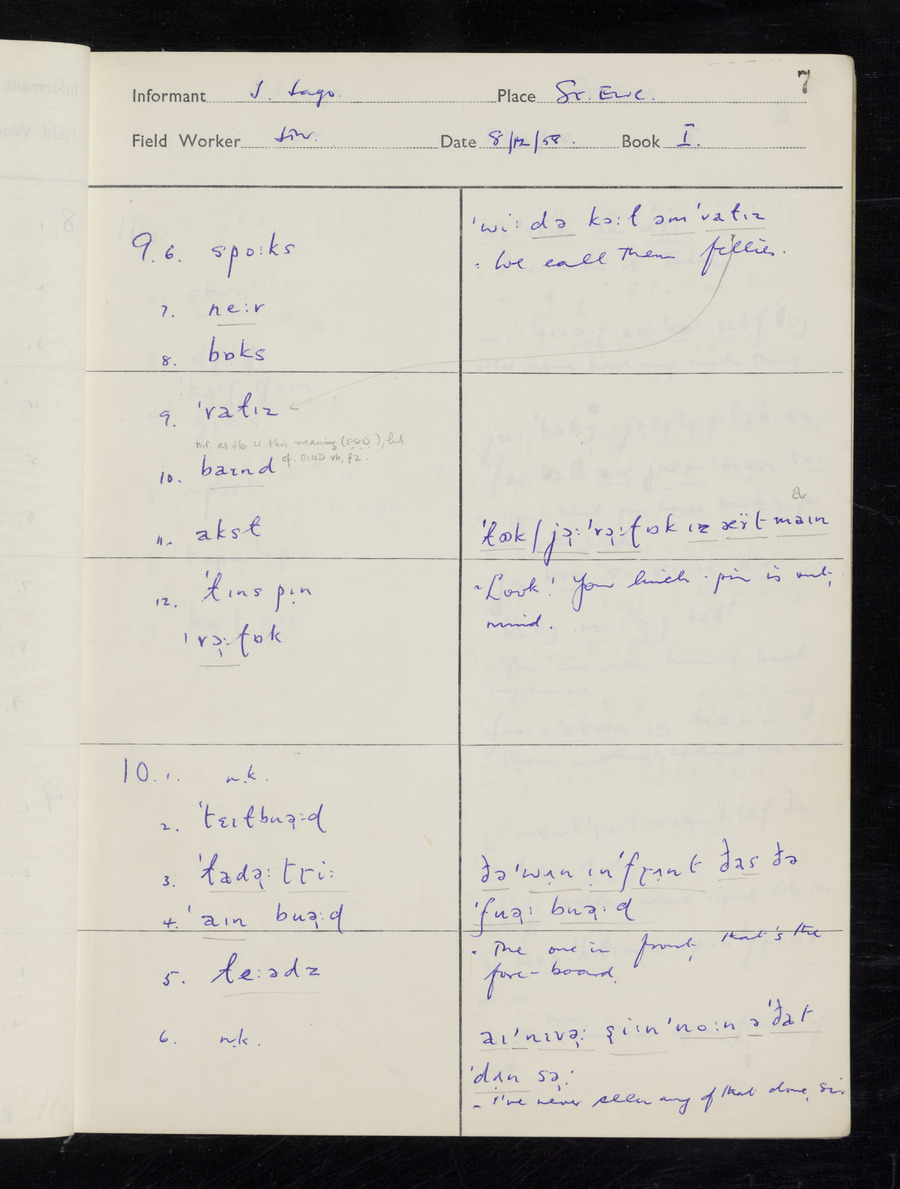 7
Informant J. Lago. Place St. Ewe.
Field Worker Date 8/12/58. Book I.
9. 6. spo:ks
7. ne:r
8. bɒks
9. 'vaɫɪz
n.r. as sb. in this meaning (EDD), but
cf. BIND vb, §2.
10. baɪnd
11. akst
12. 'ɫɪns pɪn
'və̣:ɫɒk
'wi: də kɔ:ɫ əm 'vaɫɪz
= We call them fellies.
a
'ɫʊk / jə̣: 'və̣:ɫɒk ɪz æʏ̈t maɪn
= Look! Your linch-pin is out,
mind.
10. 1. n.k.
2. 'tɛɪɫbuə̣:d
3. 'ɫadə̣: tɽi:
4. 'aɪn buə̣:d
5. ɫe:ədz
6. n.k.
ðə 'wʌn ɪn 'fɽʌnt ðas ðə
'fuə̣: buə̣:d
= The one in front, that's the
fore-board.
aɪ 'nɪvə̣: ʂi:n 'no:n ə 'ðat
'dʌn sə̣:
= I've never seen any of that done, sir